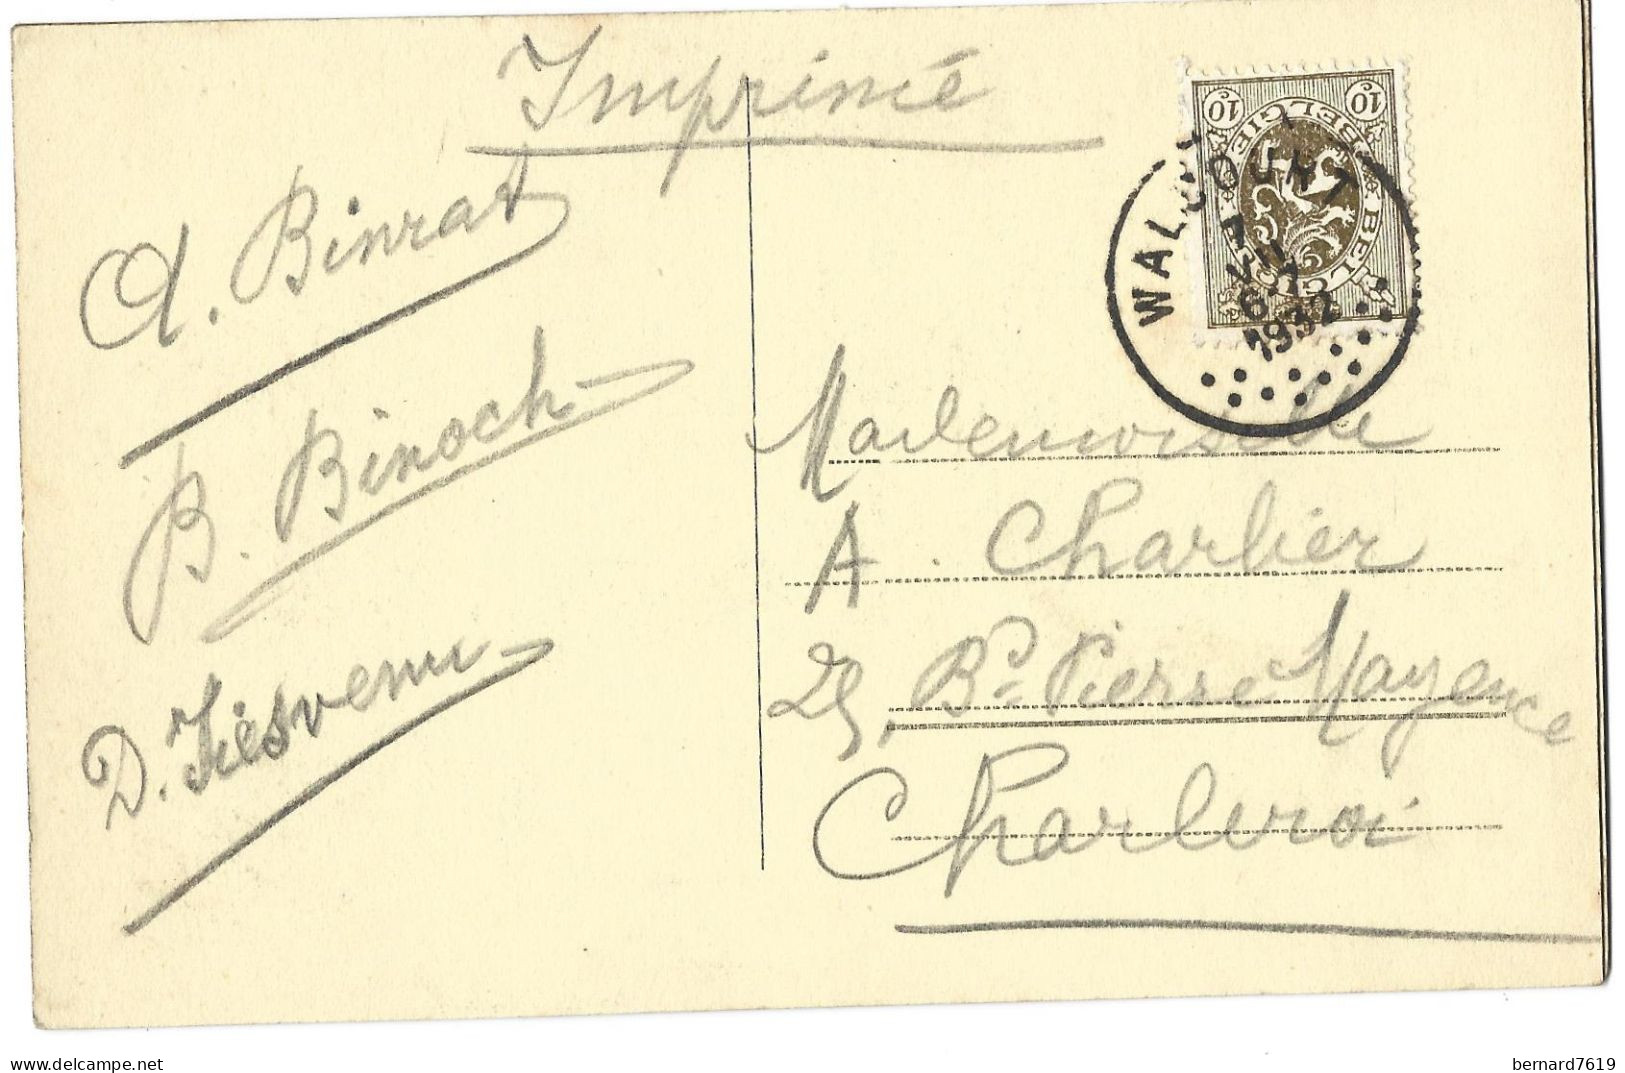 Imprimé
A. Binrat
B. Binoch
D. Tiesvenu
10c BELGIE BELGIQUE 10c
WALCOURT
7
VII
1932
Mademoiselle
A. Charlier
25, Bd Pierre Mayence
Charleroi
delcampe.net
bernard7619